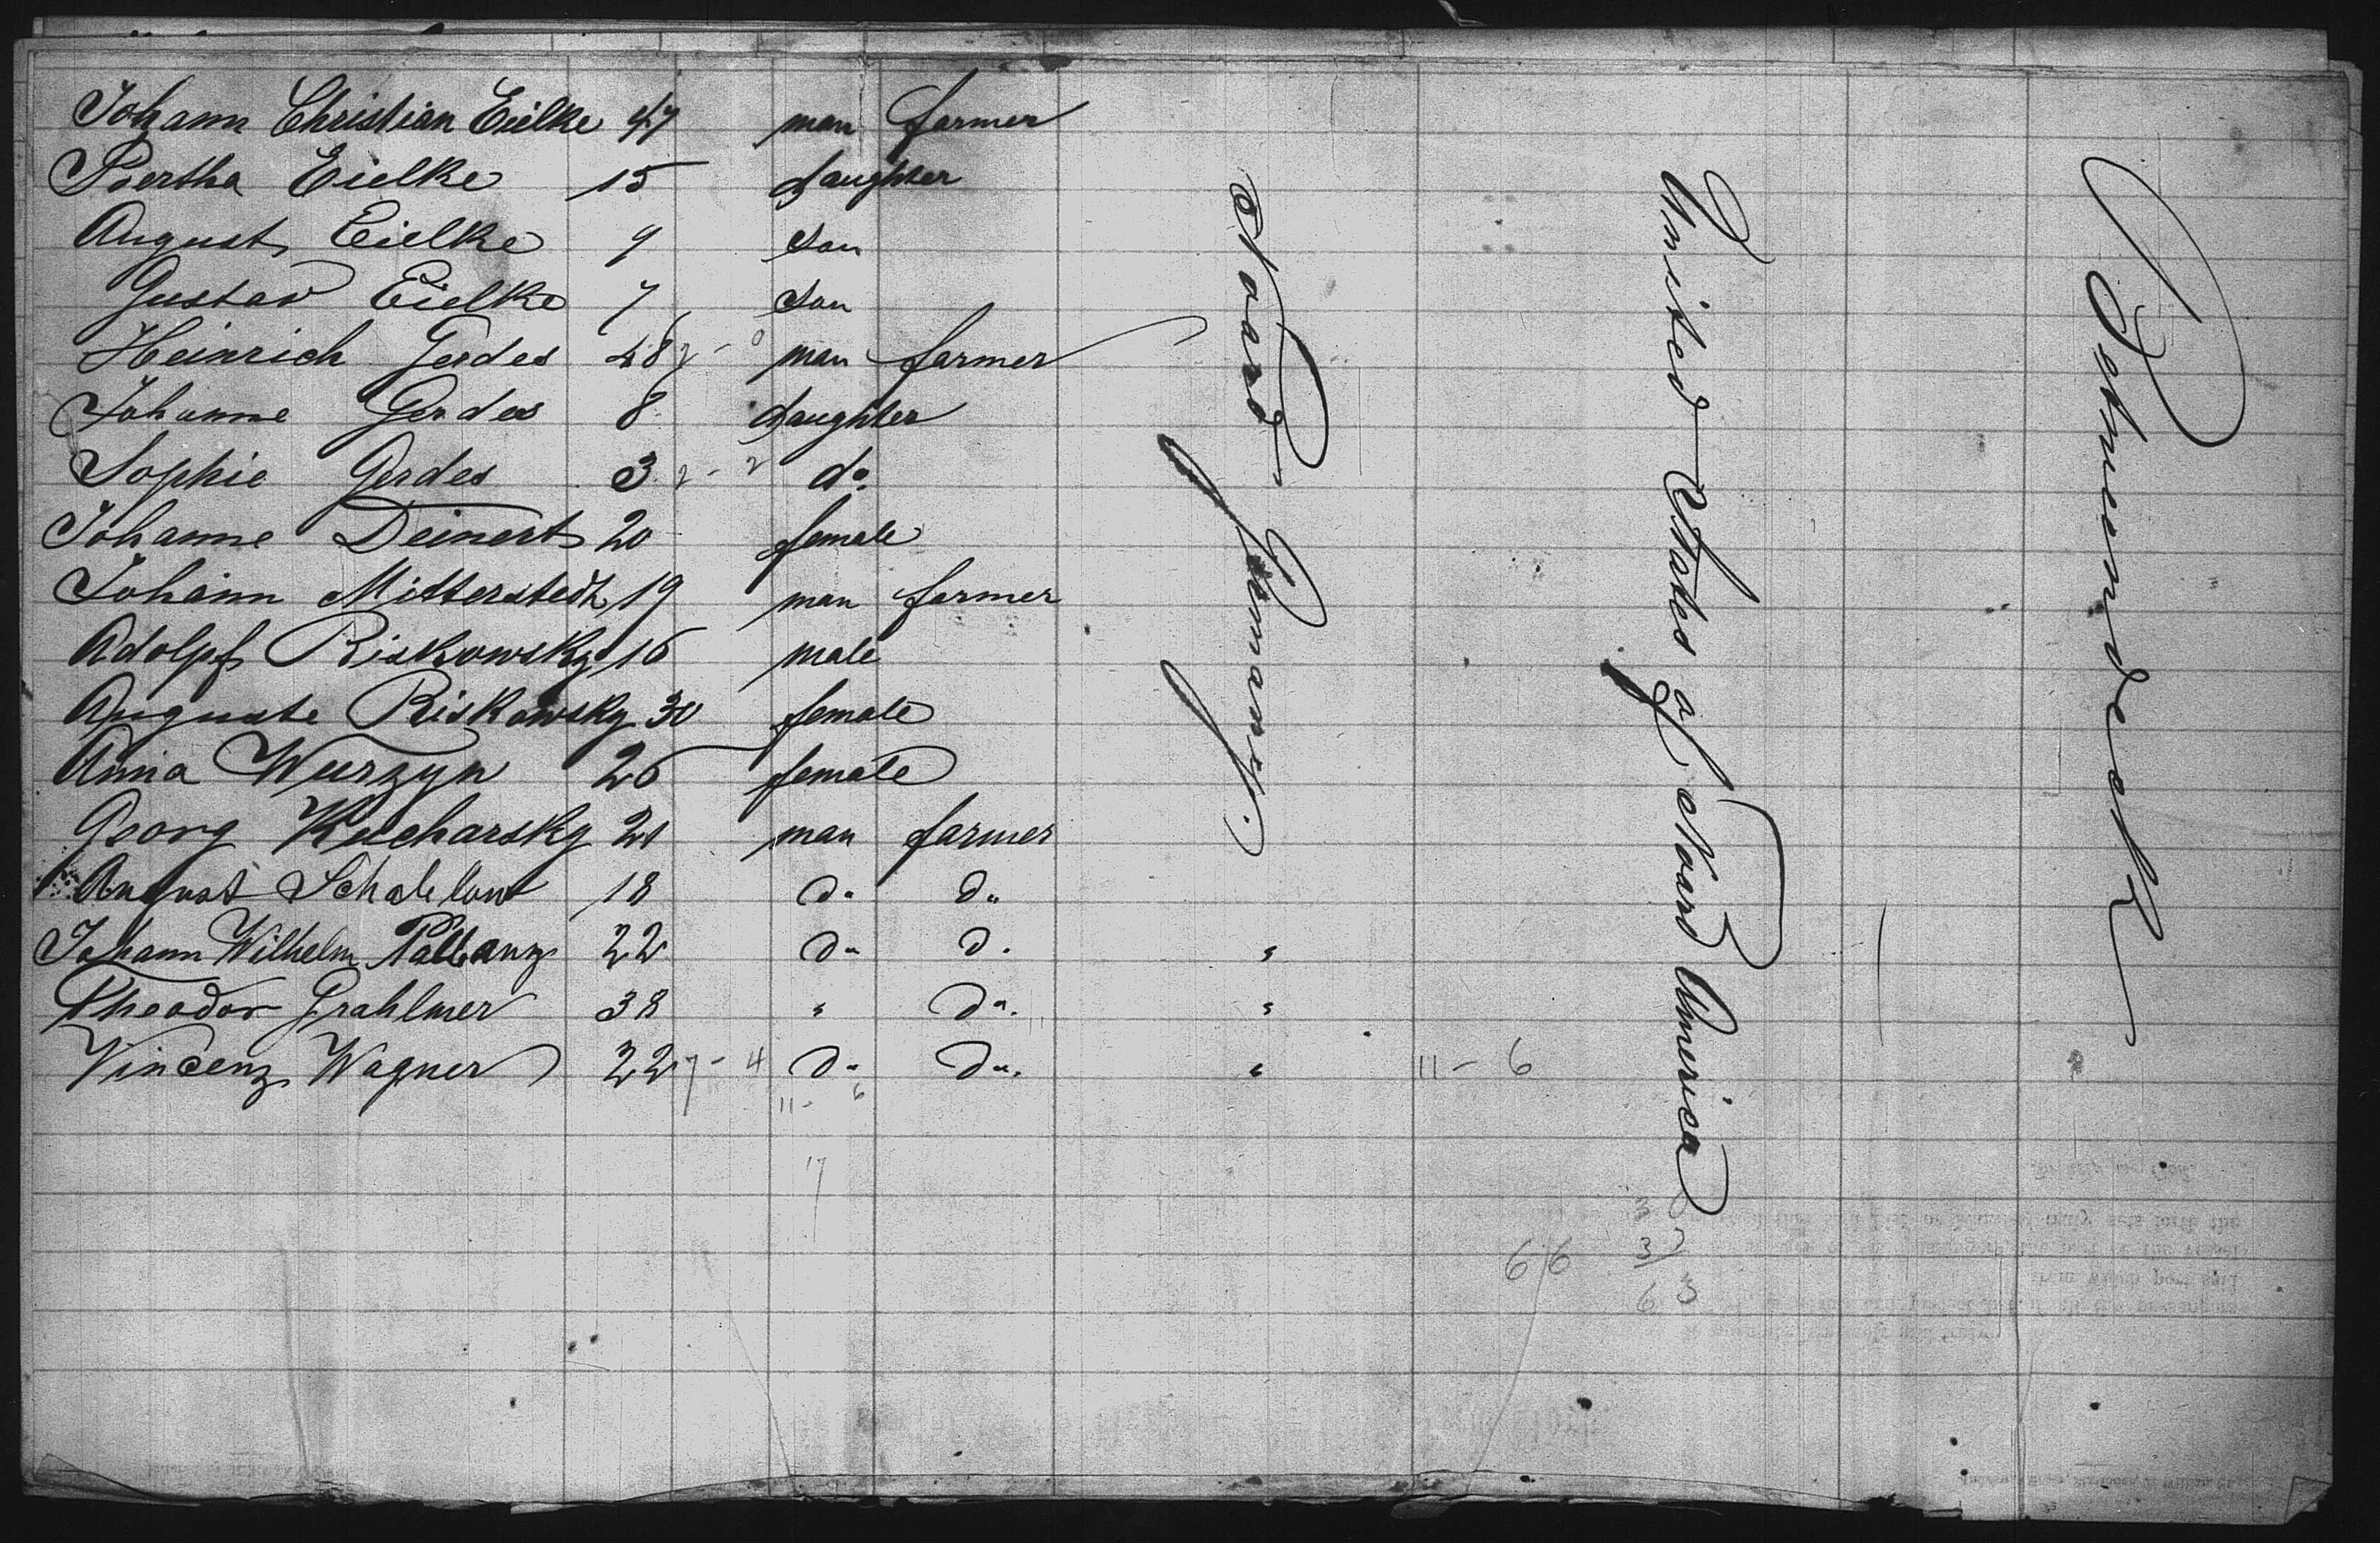 Johann Christian Eielke 47 man farmer
Bertha Eielke 15 daughter
August Eielke 9 son
Gustav Eielke 7 son
Heinrich Gerdes 48 2 - 0 man farmer
Johanne Gerdes 8 daughter
Sophie Gerdes 3 2 - 2 do
Johanne Deinert 20 female
Johann Mitterstedt 19 man farmer
Adolph Riskowsky 16 male
Auguste Riskowsky 30 female
Anna Wurzyn 26 female
Georg Kucharsky 21 man farmer
August Schablow 18 do do
Johann Wilhelm Pallanz 22 do do "
Theodor Grahlmer 38 " do. "
Vincenz Wagner 22 7 - 4 do do. " 11 - 6
11 - 6
17
Noard Germany.
United States of Noard America
Zwischendeck
30
33
66 63